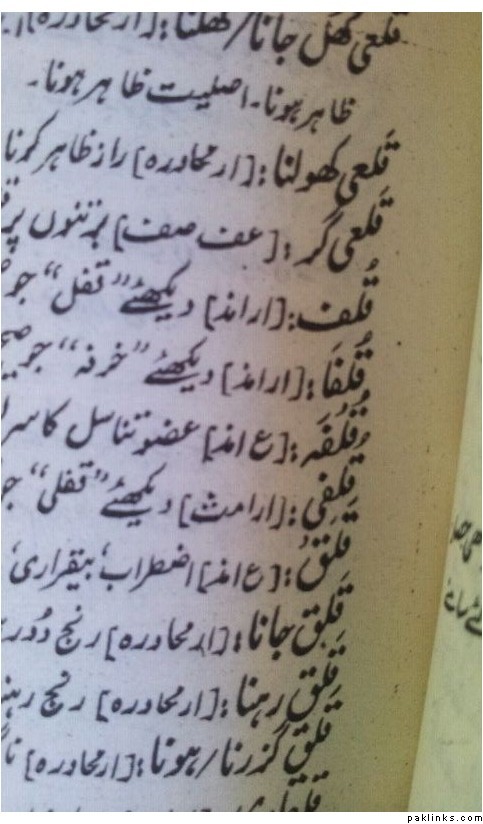 قلعی کھل جانا/کھلنا:[ار محاورہ]
ظاہر ہونا۔اصلیت ظاہر ہونا۔
قَلعی کھولنا:[ار محاورہ] راز ظاہر کرنا
قَلعی گر:[عف صف] برتنوں پر
قُلف:[ار امذ] دیکھئے “قفل“ جو
قُلفَا:[ار امذ] دیکھئے “خرفہ“ جو
قُلفَہ:[ع امذ] عضو تناسل کا
قُلفی:[ار امث] دیکھئے “قفلی“
قَلَق:[ع امذ] اضطراب‘ بیقراری‘
قَلَق جانا:[ار محاورہ] رنج دُور
قَلَق رہنا:[ار محاورہ] رنج
قَلَق گزرنا/ہونا:[ار محاورہ]
paklinks.com